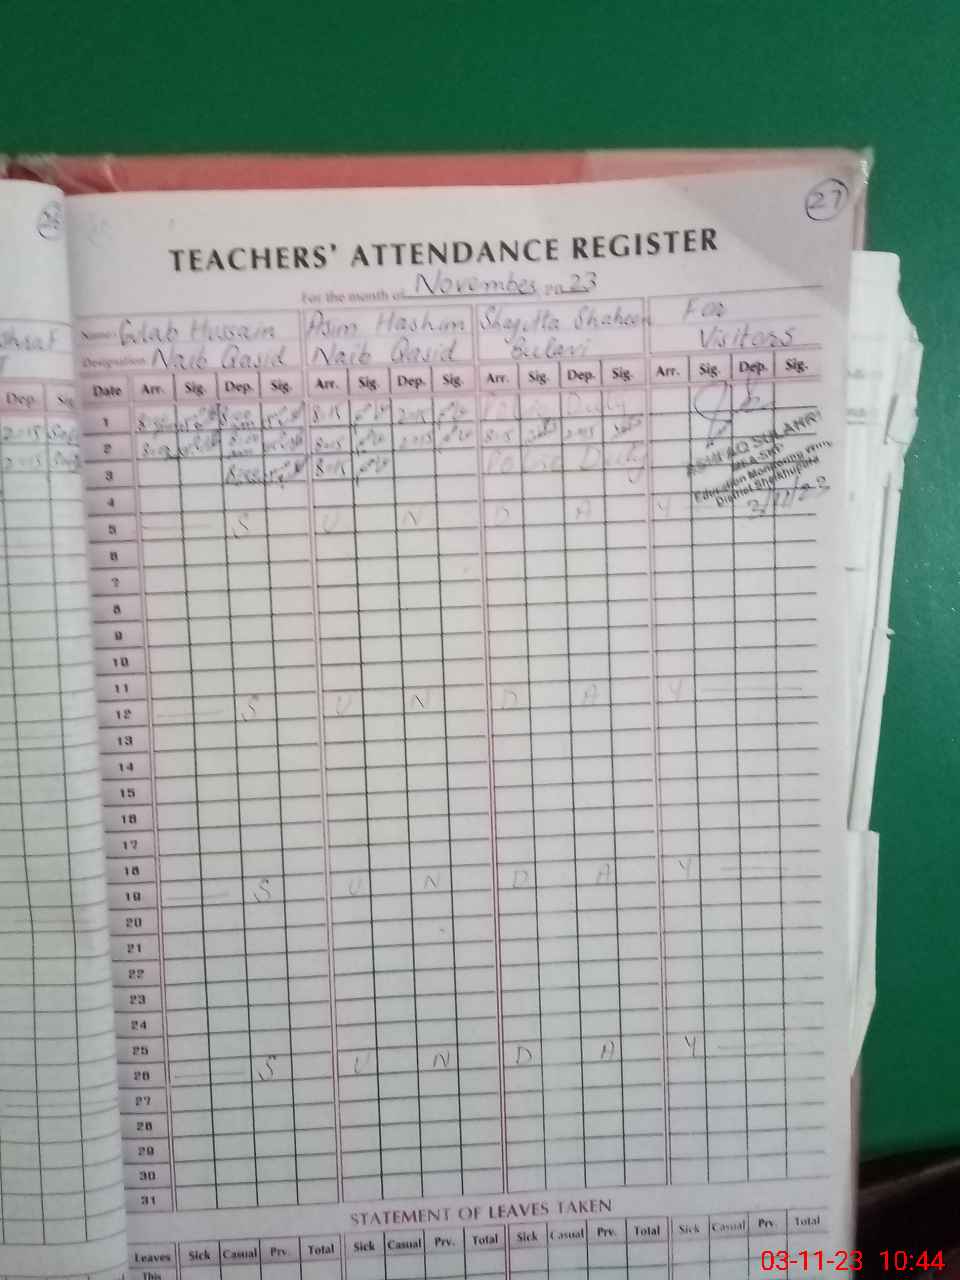 27
TEACHERS' ATTENDANCE REGISTER
For the month of November 2023
Name: Gulab Hussain Asim Hashim Shagitta Shaheen For
Designation Naib Qasid Naib Qasid Bulavi Visitors
Date Arr. Sig. Dep. Sig. Arr. Sig. Dep. Sig. Arr. Sig. Dep. Sig. Arr. Sig. Dep. Sig.
Dep.
1 8:00 8:15 2:15 Polio Duty
2:15
2 8:00 8:15 2:15 8:15 2:15
2:15
3 8:00 8:15 Polio Duty
Education Monitoring
District Sheikhupura
4
3/11/23
5 S U N D A Y
6
7
8
9
10
11
12 S U N D A Y
13
14
15
16
17
18
19 S U N D A Y
20
21
22
23
24
25
26 S U N D A Y
27
28
29
30
31
STATEMENT OF LEAVES TAKEN
Leaves Sick Casual Prv. Total Sick Casual Prv. Total Sick Casual Prv. Total Sick Casual Prv. Total
This
03-11-23 10:44